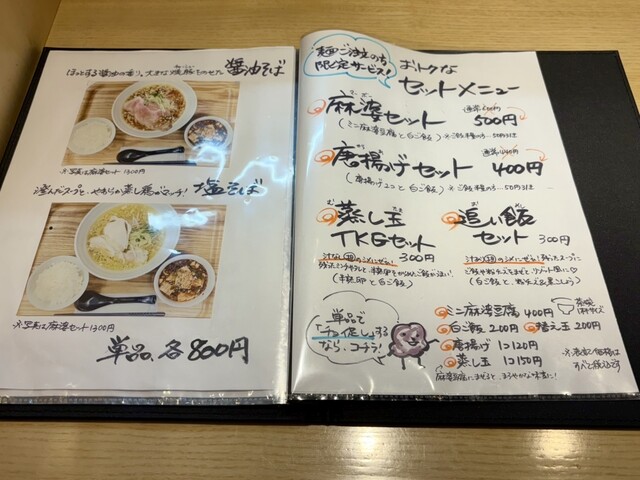 ほっとする醤油の香り。大きな焼豚をのせた 醤油そば
※写真は麻婆セット1300円
澄んだスープと、やわらか蒸し鶏がマッチ! 塩そば
※写真は麻婆セット1300円
単品、各800円
麺ご注文の方
限定サービス!
おトクな
セットメニュー
麻婆セット 500円
(ミニ麻婆豆腐と白ご飯)
唐揚げセット 400円
(唐揚げ2コと白ご飯)
蒸し玉
TKGセット 300円
(半熟卵と白ご飯)
追い飯
セット 300円
単品で
「チョイ足し」する
なら、コチラ!
ミニ麻婆豆腐 400円
白ご飯 200円 替え玉 200円
唐揚げ 1コ120円
蒸し玉 1コ150円
麻婆豆腐にまぜると、まろやかな味に!
※表記価格は
すべて税込です